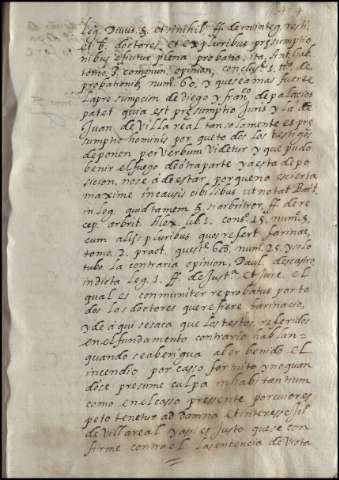 leg. Divus. §.
et ibi doctores, et ex pluribus præsumptio
nibus efficitur plena probatio, ita
tomo. 3. commun. opinion, conclus. 1. nº. de
probationib. num. 60. y que sea mas fuerte
la presumpcion de Diego y franco de palacios
patet quia est præsumptio Juris y la de
Juan de Villa real tan solamente es præ
sumptio hominis por que todos los testigos
deponen por verbum videtur y que pudo
benir el fuego de otra parte y a esta depo
sicion, no se a de estar, porque no es cierta
maxime in causis cibilibus ut notat Bart.
in leg. quid tamen. §. si arbitror. ff. de re
cep. arbitr. lib. 1. cons. 15. num. 5.
cum aliis pluribus quos refert farinac.
tomo. 2. pract. quest. 68. num. 25. y solo
tubo la contraria opinion, Paul. de castro
in dicta leg. 1. ff. de Just. et Jure. el
qual es communiter reprobatus por to
dos los doctores que refiere farinacio,
y de aqui se saca que los testos referidos
en el fundamento contrario hablan
quando se aberigua aber benido el
incendio por casso fortuito y no quan
do se presume culpa inhabitantium
como en el casso presente por cuio res
peto tenetur ad damna et interese
de Villa real y assi es justo que se con
firme contra el la sentencia de vista